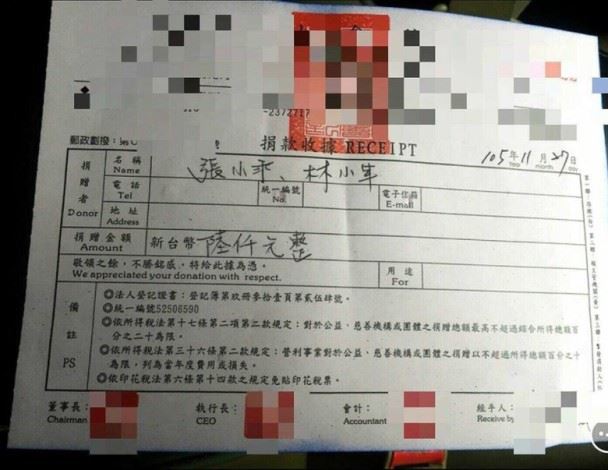 -2372717
郵政劃撥：
捐款收據 RECEIPT
105年11月27日
Year month day
捐贈者 Donor
名稱 Name 張小乖、林小年
電話 Tel
統一編號 No.
電子信箱 E-mail
地址 Address
捐贈金額 Amount
新台幣陸仟元整
敬領之餘，不勝銘感，特給此據為憑。
We appreciated your donation with respect.
用途 For
備註 PS
◎法人登記證書：登記簿第玖冊參拾壹頁第貳伍肆號。
◎統一編號52506590
◎依所得稅法第十七條第二項第二款規定：對於公益、慈善機構或團體之捐贈總額最高不超過綜合所得總額百
分之二十為限。
◎依所得稅法第三十六條第二款規定：營利事業對於公益、慈善機構或團體之捐贈以不超過所得總額百分之十
為限，列為當年度費用或損失。
◎依印花稅法第六條第十四款之規定免貼印花稅票。
董事長：
Chairman
執行長：
CEO
會計：
Accountant
經手人：
Receive by